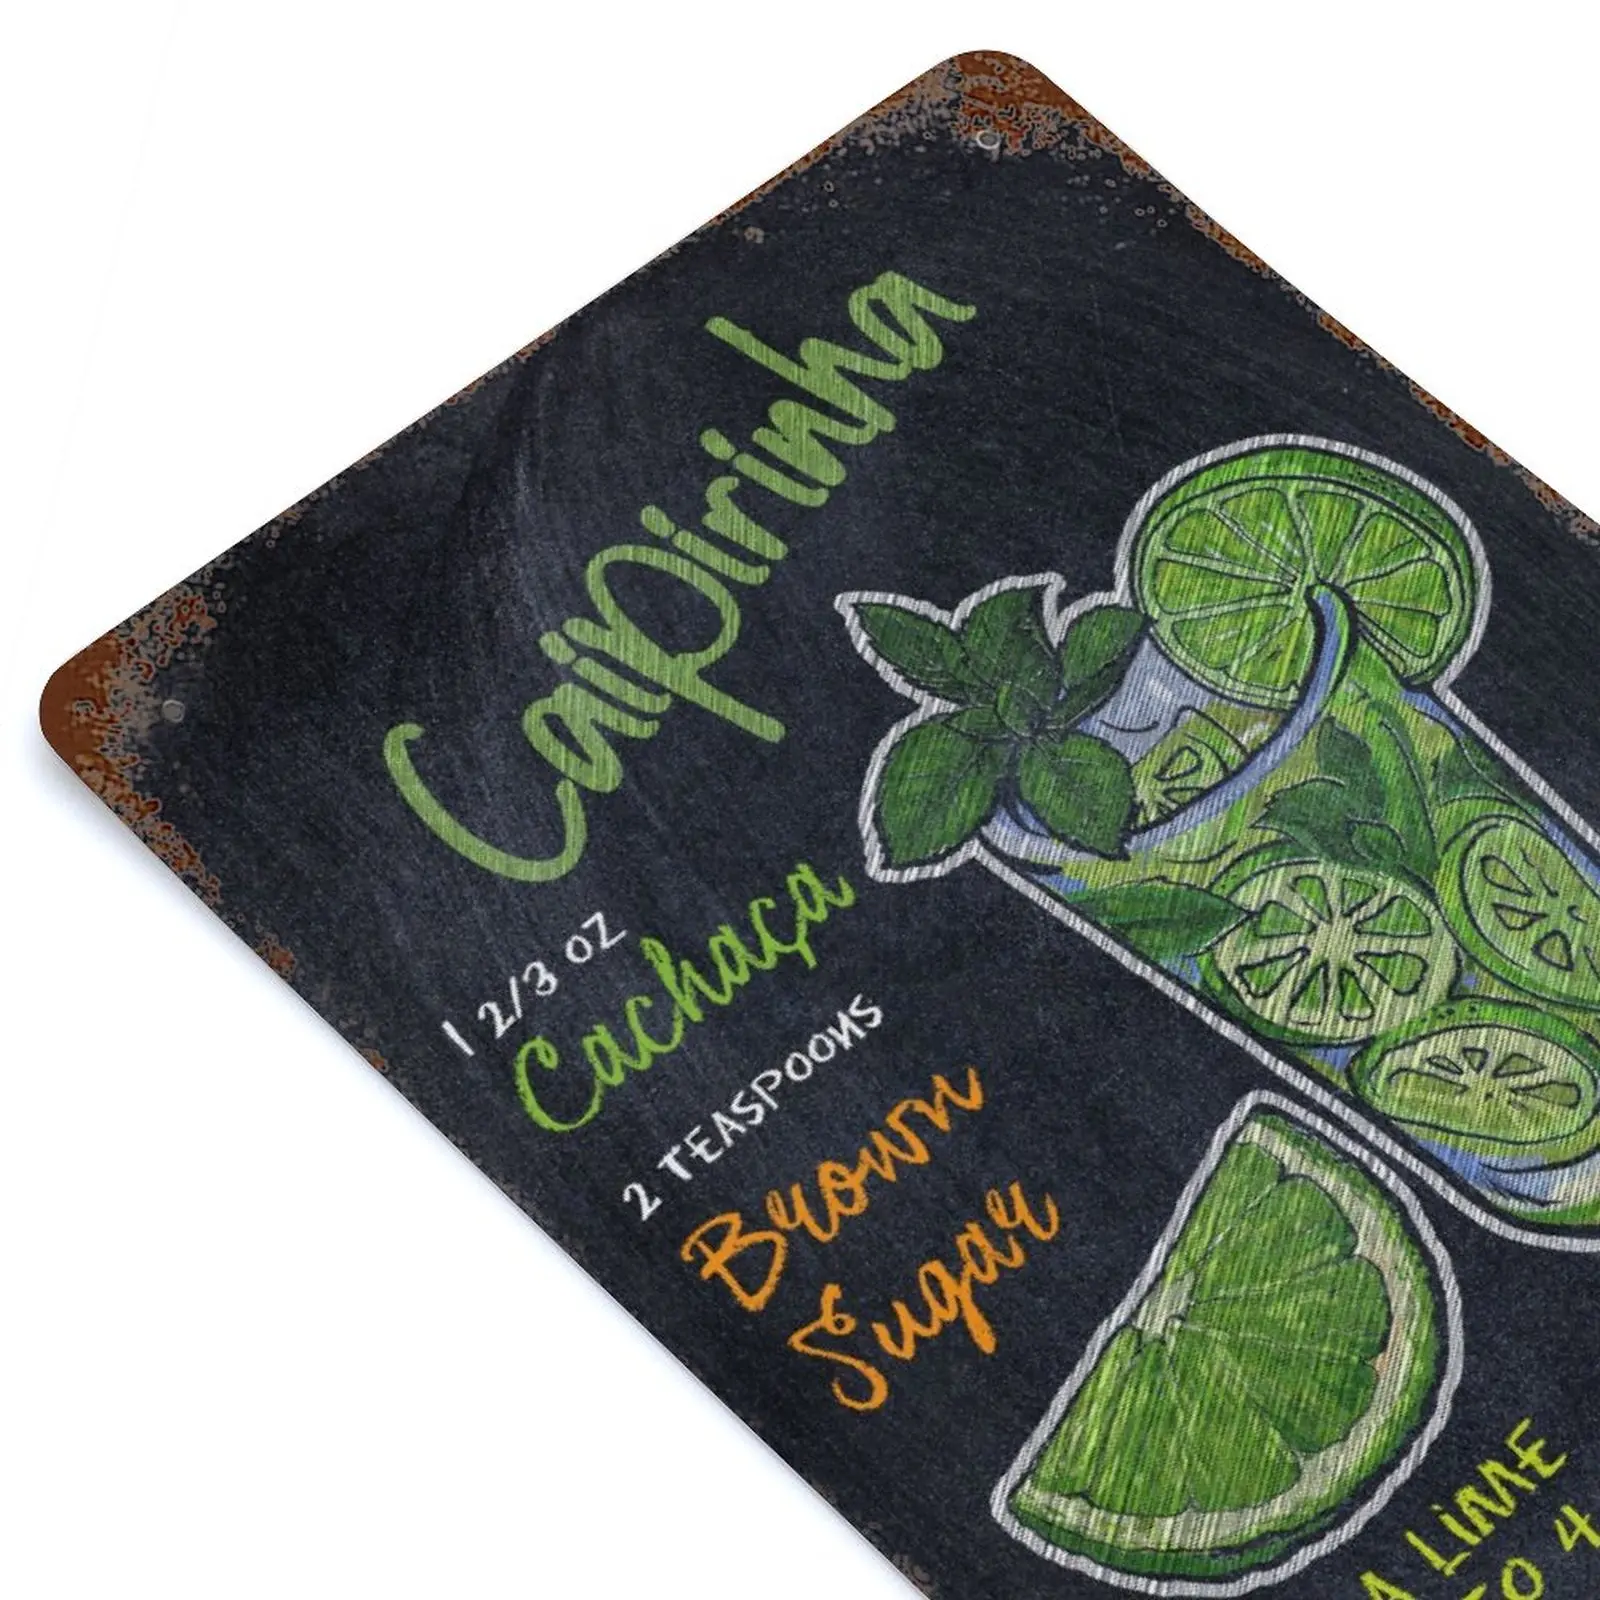 Caipirinha
1 2/3 OZ
Cachaça
2 TEASPOONS
Brown
Sugar
A LIME
TO 4